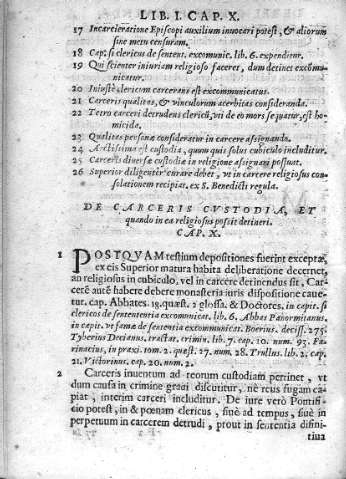 LIB. I. CAP. X.
17 Incarceratione Episcopi auxilium inuocari potest, & aliorum
sine metu censuram.
18 Cap. si clericus de sentent. excommunic. lib. 6. expenditur.
19 Qui scienter iniuriam religioso faceret, dum detinet excõmu-
nicatur.
20 Iniustè clericum carcerans est excommunicatus.
21 Carceris qualitas, & vinculorum acerbitas consideranda.
22 Tetro carceri detrudens clericũ, vt de eo mors sequatur, est ho-
micida.
23 Qualitas personæ consideratur in carcere assignando.
24 Arctissima est custodia, quum quis solus cubiculo includitur.
25 Carceris diuersæ custodiæ in religione assignari possunt.
26 Superior diligenter curare debet, vt in carcere religiosus con-
solationem recipiat. ex S. Benedicti regula.
DE CARCERIS CVSTODIA, ET
quando in ea religiosus possit detineri.
CAP. X.
1 POSTQVAM testium depositiones fuerint exceptæ,
ex eis Superior matura habita deliberatione decernet,
an religiosus in cubiculo, vel in carcere detinendus sit, Car-
cerẽ autẽ habere debere monasteria iuris dispositione caue-
tur. cap. Abbates. 18. quæst. 2 glossa. & Doctores. in capit. si
clericus de sentententia excommunicat. lib. 6. Abbas Panormitanus.
in capit. vt famæ de sententia excommunicat. Boerius. deciss. 275.
Tyberius Decianus. tractat. crimin. lib. 7. cap. 10. num. 93. Fa-
rinacius, in praxi. tom. 2. quæst. 27. num. 28. Trullus. lib. 2. cap.
21. Victorinus. cap. 20. num. 2.
2 Carceris inuentum ad reorum custodiam pertinet, vt
dum causa in crimine graui discutitur, nè reus fugam ca-
piat, interim carceri includitur. De iure verò Pontifi-
cio potest, in & pœnam clericus, siuè ad tempus, siuè in
perpetuum in carcerem detrudi, prout in sententia difini-
tiua